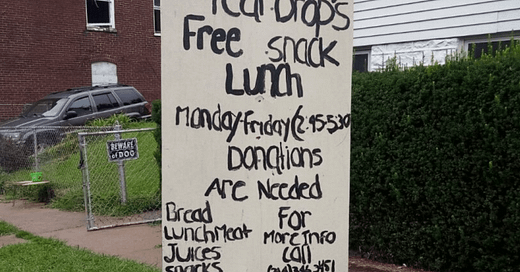 Tear Drops
Free snack
Lunch
Monday-Friday(2:45-530
Donations
Are Needed
Bread
LunchMeat
Juices
snacks
For
More Info
Call
BEWARE
of DOG